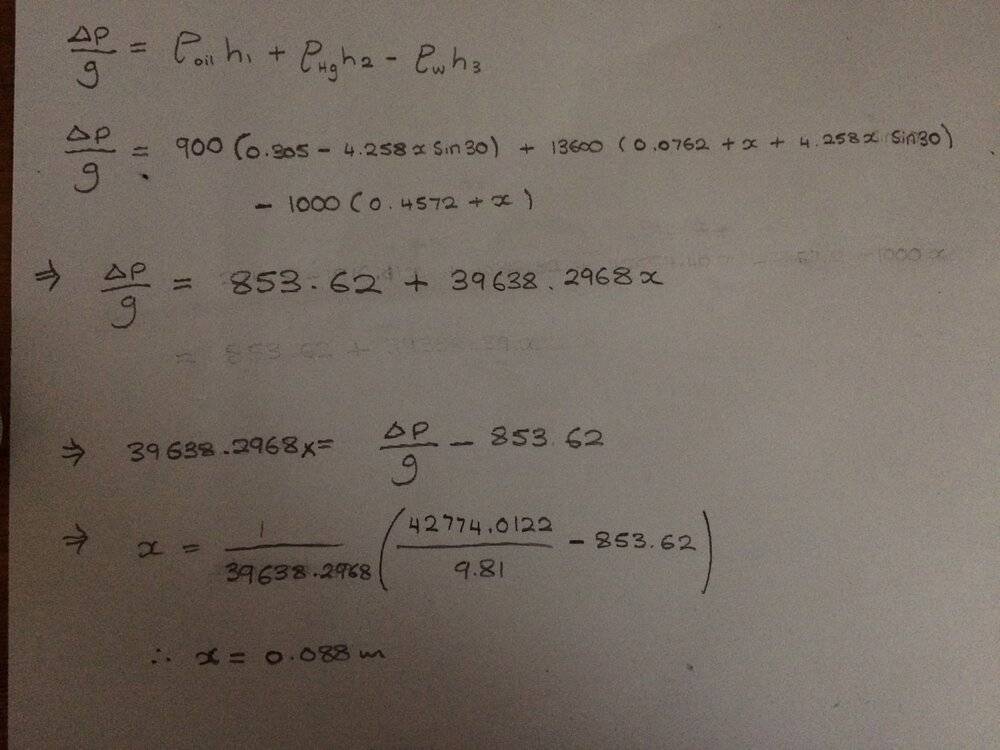 ΔP/g = ρoil h1 + ρHg h2 - ρw h3
ΔP/g = 900 (0.305 - 4.258x sin30) + 13600 (0.0762 + x + 4.258x sin30)
- 1000 (0.4572 + x)
⇒ ΔP/g = 853.62 + 39638.2968x
⇒ 39638.2968x = ΔP/g - 853.62
⇒ x = 1/39638.2968 (42774.0122/9.81 - 853.62)
∴ x = 0.088 m